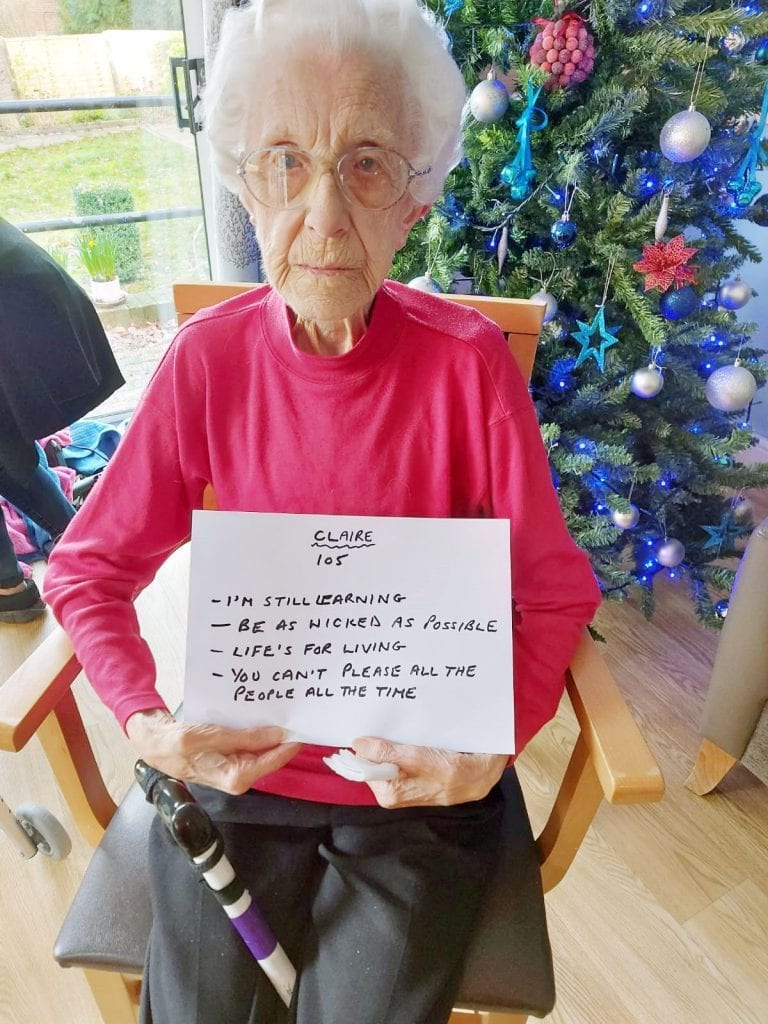 CLAIRE
105
- I'M STILL LEARNING
- BE AS WICKED AS POSSIBLE
- LIFE'S FOR LIVING
- YOU CAN'T PLEASE ALL THE
PEOPLE ALL THE TIME